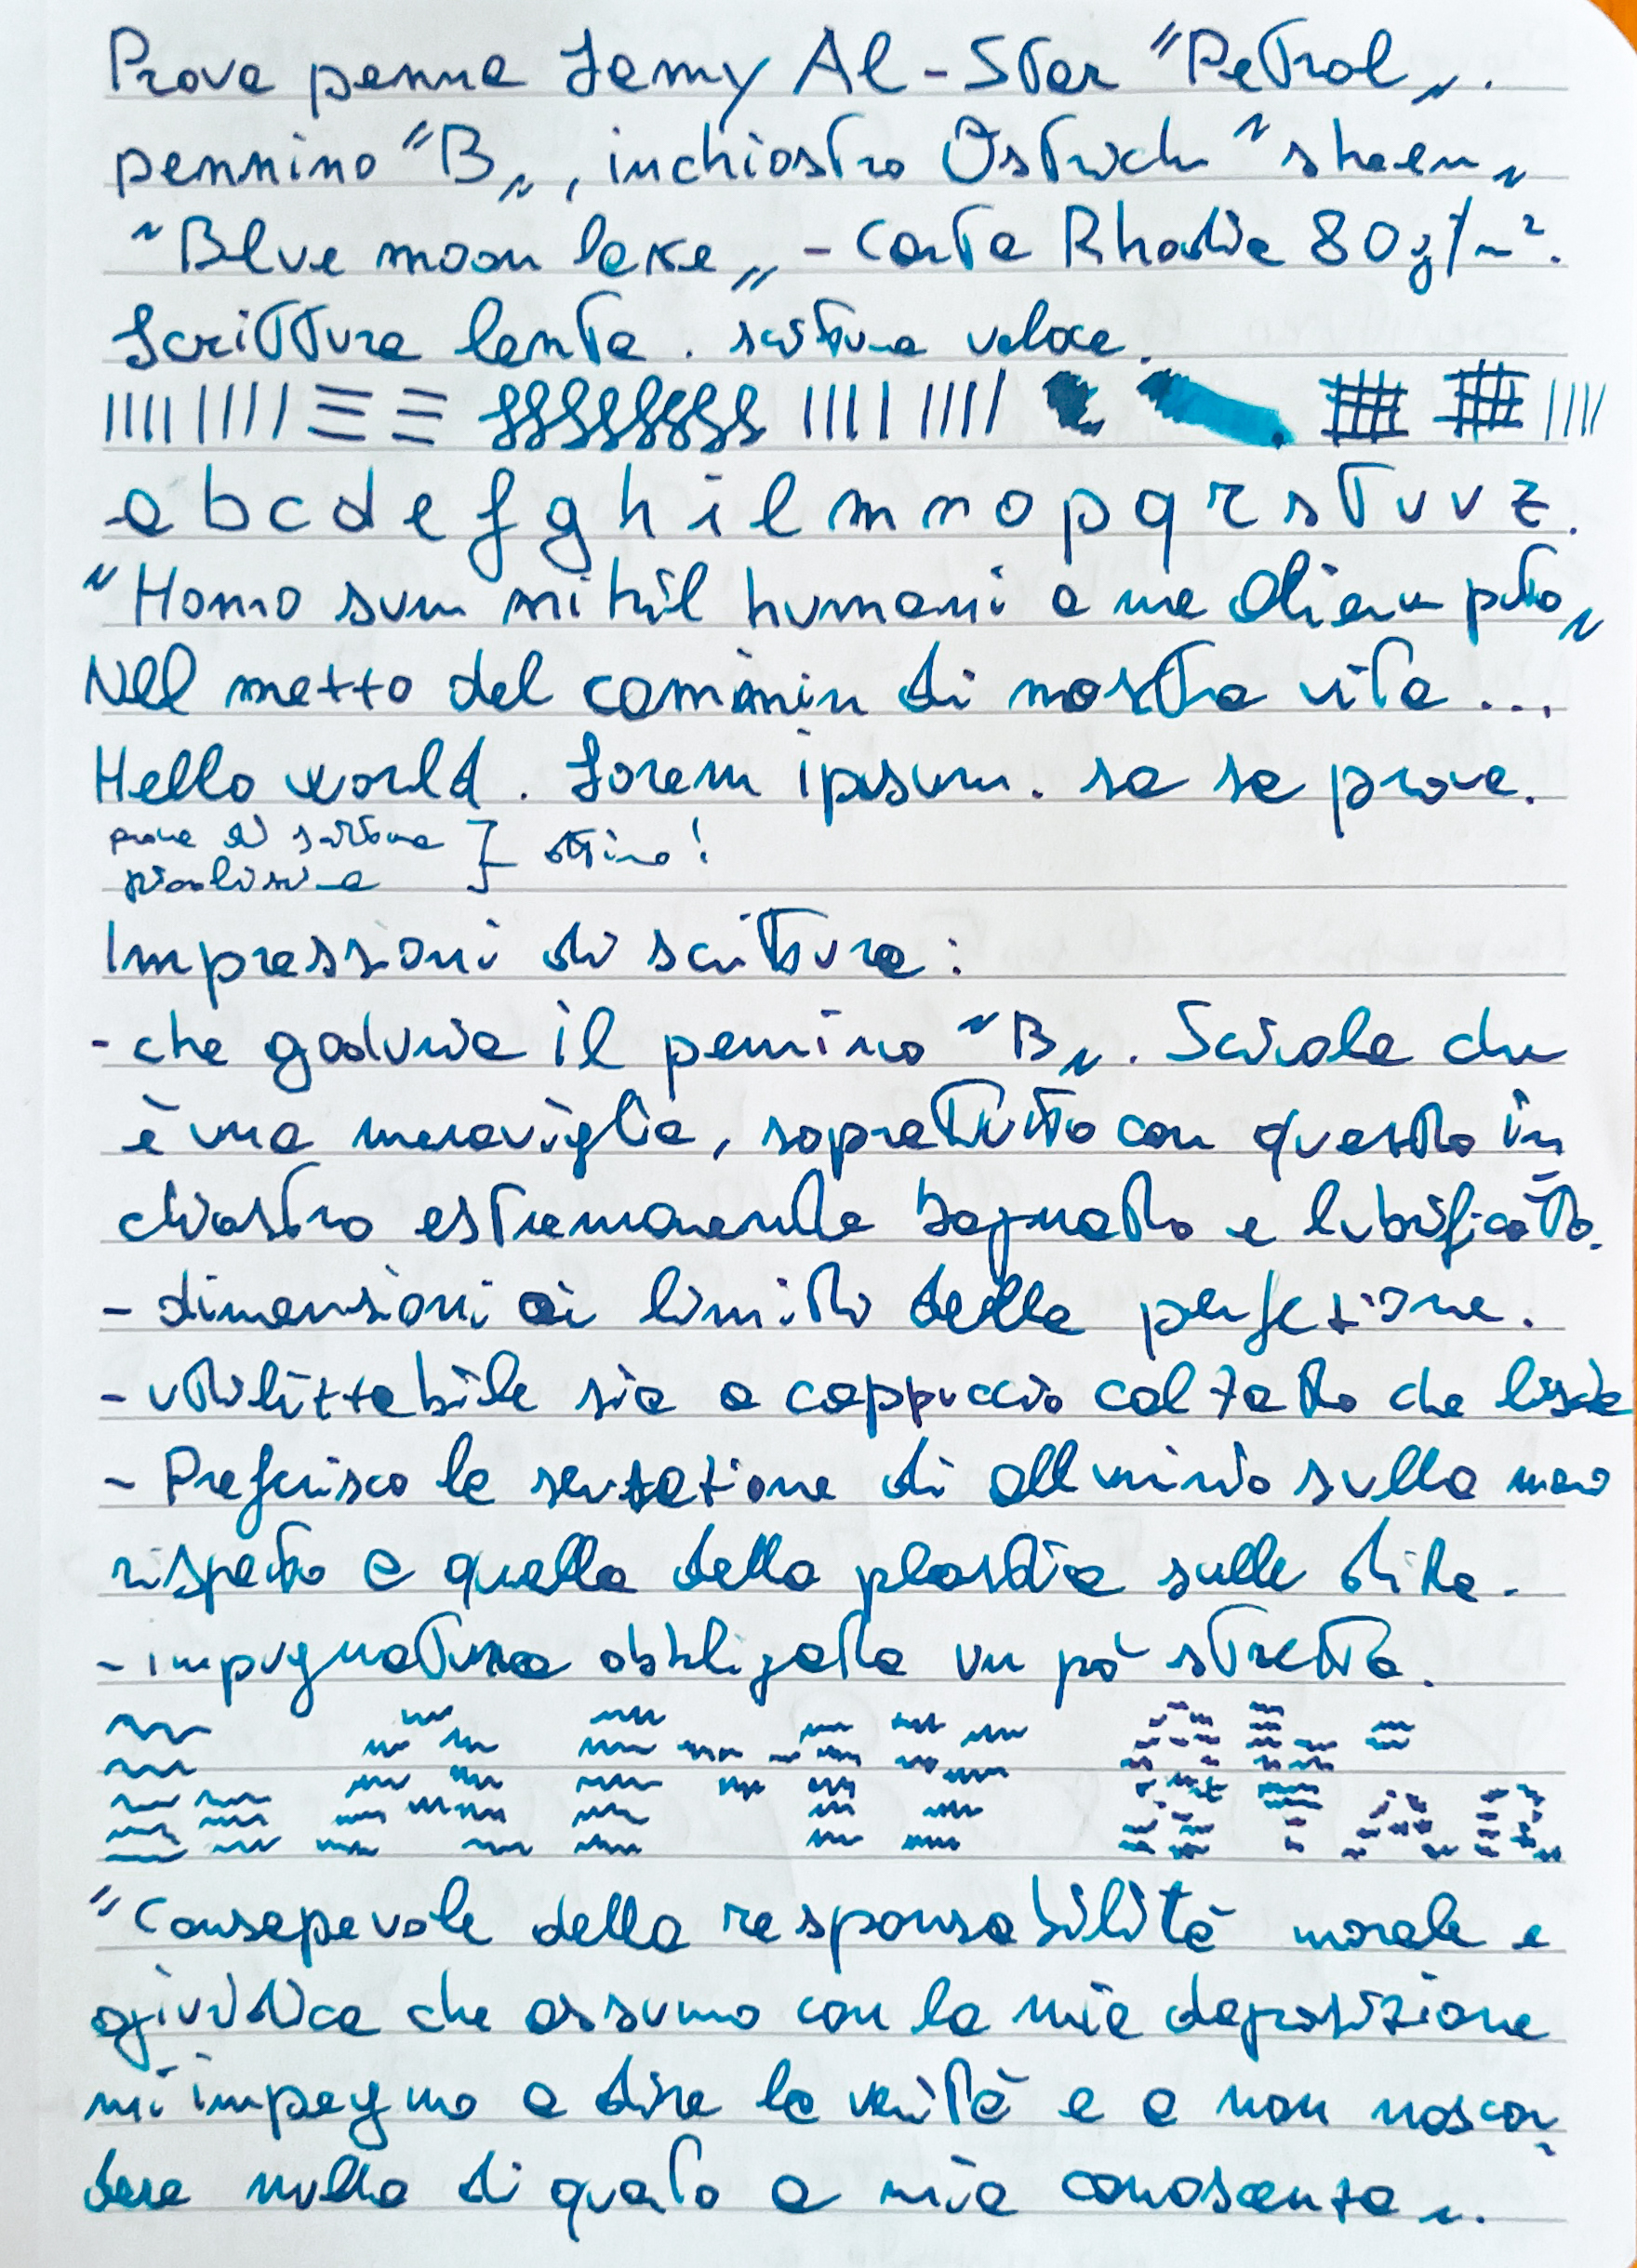 Prova penna Lamy Al-Star "Petrol".
pennino "B", inchiostro Ostrich "sheen"
"Blue moon lake" - Carta Rhodia 80 g/m².
Scrittura lenta. scrittura veloce.
a b c d e f g h i l m n o p q r s t u v z.
"Homo sum nihil humani a me alienum puto"
Nel mezzo del cammin di nostra vita ...
Hello world. Lorem ipsum. sa sa prova.
prova di scrittura } ottimo!
piccolissima
Impressioni di scrittura:
- che goduria il pennino "B". Scivola che
è una meraviglia, sopratutto con questo in
chiostro estremamente bagnato e lubrificato.
- dimensioni ai limiti della perfezione.
- utilizzabile sia a cappuccio calzato che liscia
- Preferisco la sensazione di alluminio sulla mano
rispetto a quella della plastica sulle dita.
- impugnatura obbligata un pò stretta.
"Consapevole della responsabilità morale e
giuridica che assumo con la mia deposizione
mi impegno a dire la verità e a non nascon-
dere nulla di quato a mia conoscenza".